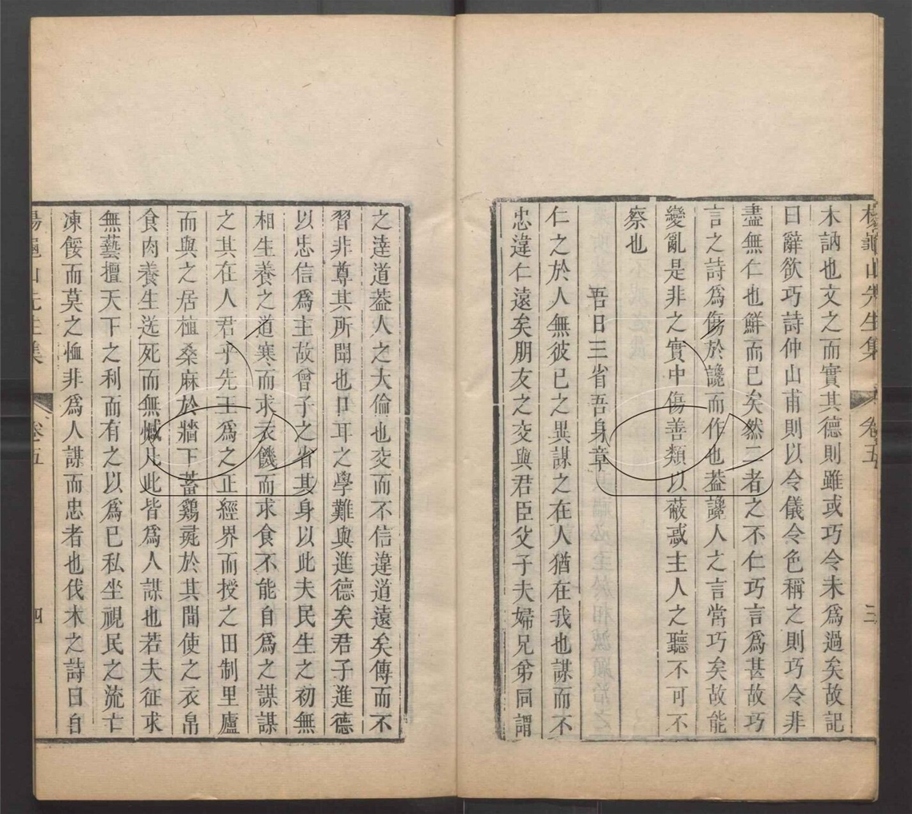 楊龜山先生集 卷五 三
木訥也文之而實其德則雖或巧令未爲過矣故記
曰辭欲巧詩仲山甫則以令儀令色稱之則巧令非
盡無仁也鮮而已矣然二者之不仁巧言爲甚故巧
言之詩爲傷於讒而作也葢讒人之言常巧矣故能
變亂是非之實中傷善類以蔽惑主人之聽不可不
察也
吾日三省吾身章
仁之於人無彼已之異謀之在人猶在我也謀而不
忠違仁遠矣朋友之交與君臣父子夫婦兄弟同謂
之逹道葢人之大倫也交而不信違道遠矣傳而不
習非尊其所聞也口耳之學難與進德矣君子進德
以忠信爲主故曾子之省其身以此夫民生之初無
相生養之道寒而求衣饑而求食不能自爲之謀謀
之其在人君乎先王爲之正經界而授之田制里廬
而與之居植桑麻於牆下蓄鷄彘於其間使之衣帛
食肉養生送死而無憾凡此皆爲人謀也若夫征求
無藝擅天下之利而有之以爲已私坐視民之流亡
凍餒而莫之恤非爲人謀而忠者也伐木之詩曰自
楊龜山先生集 卷五 四